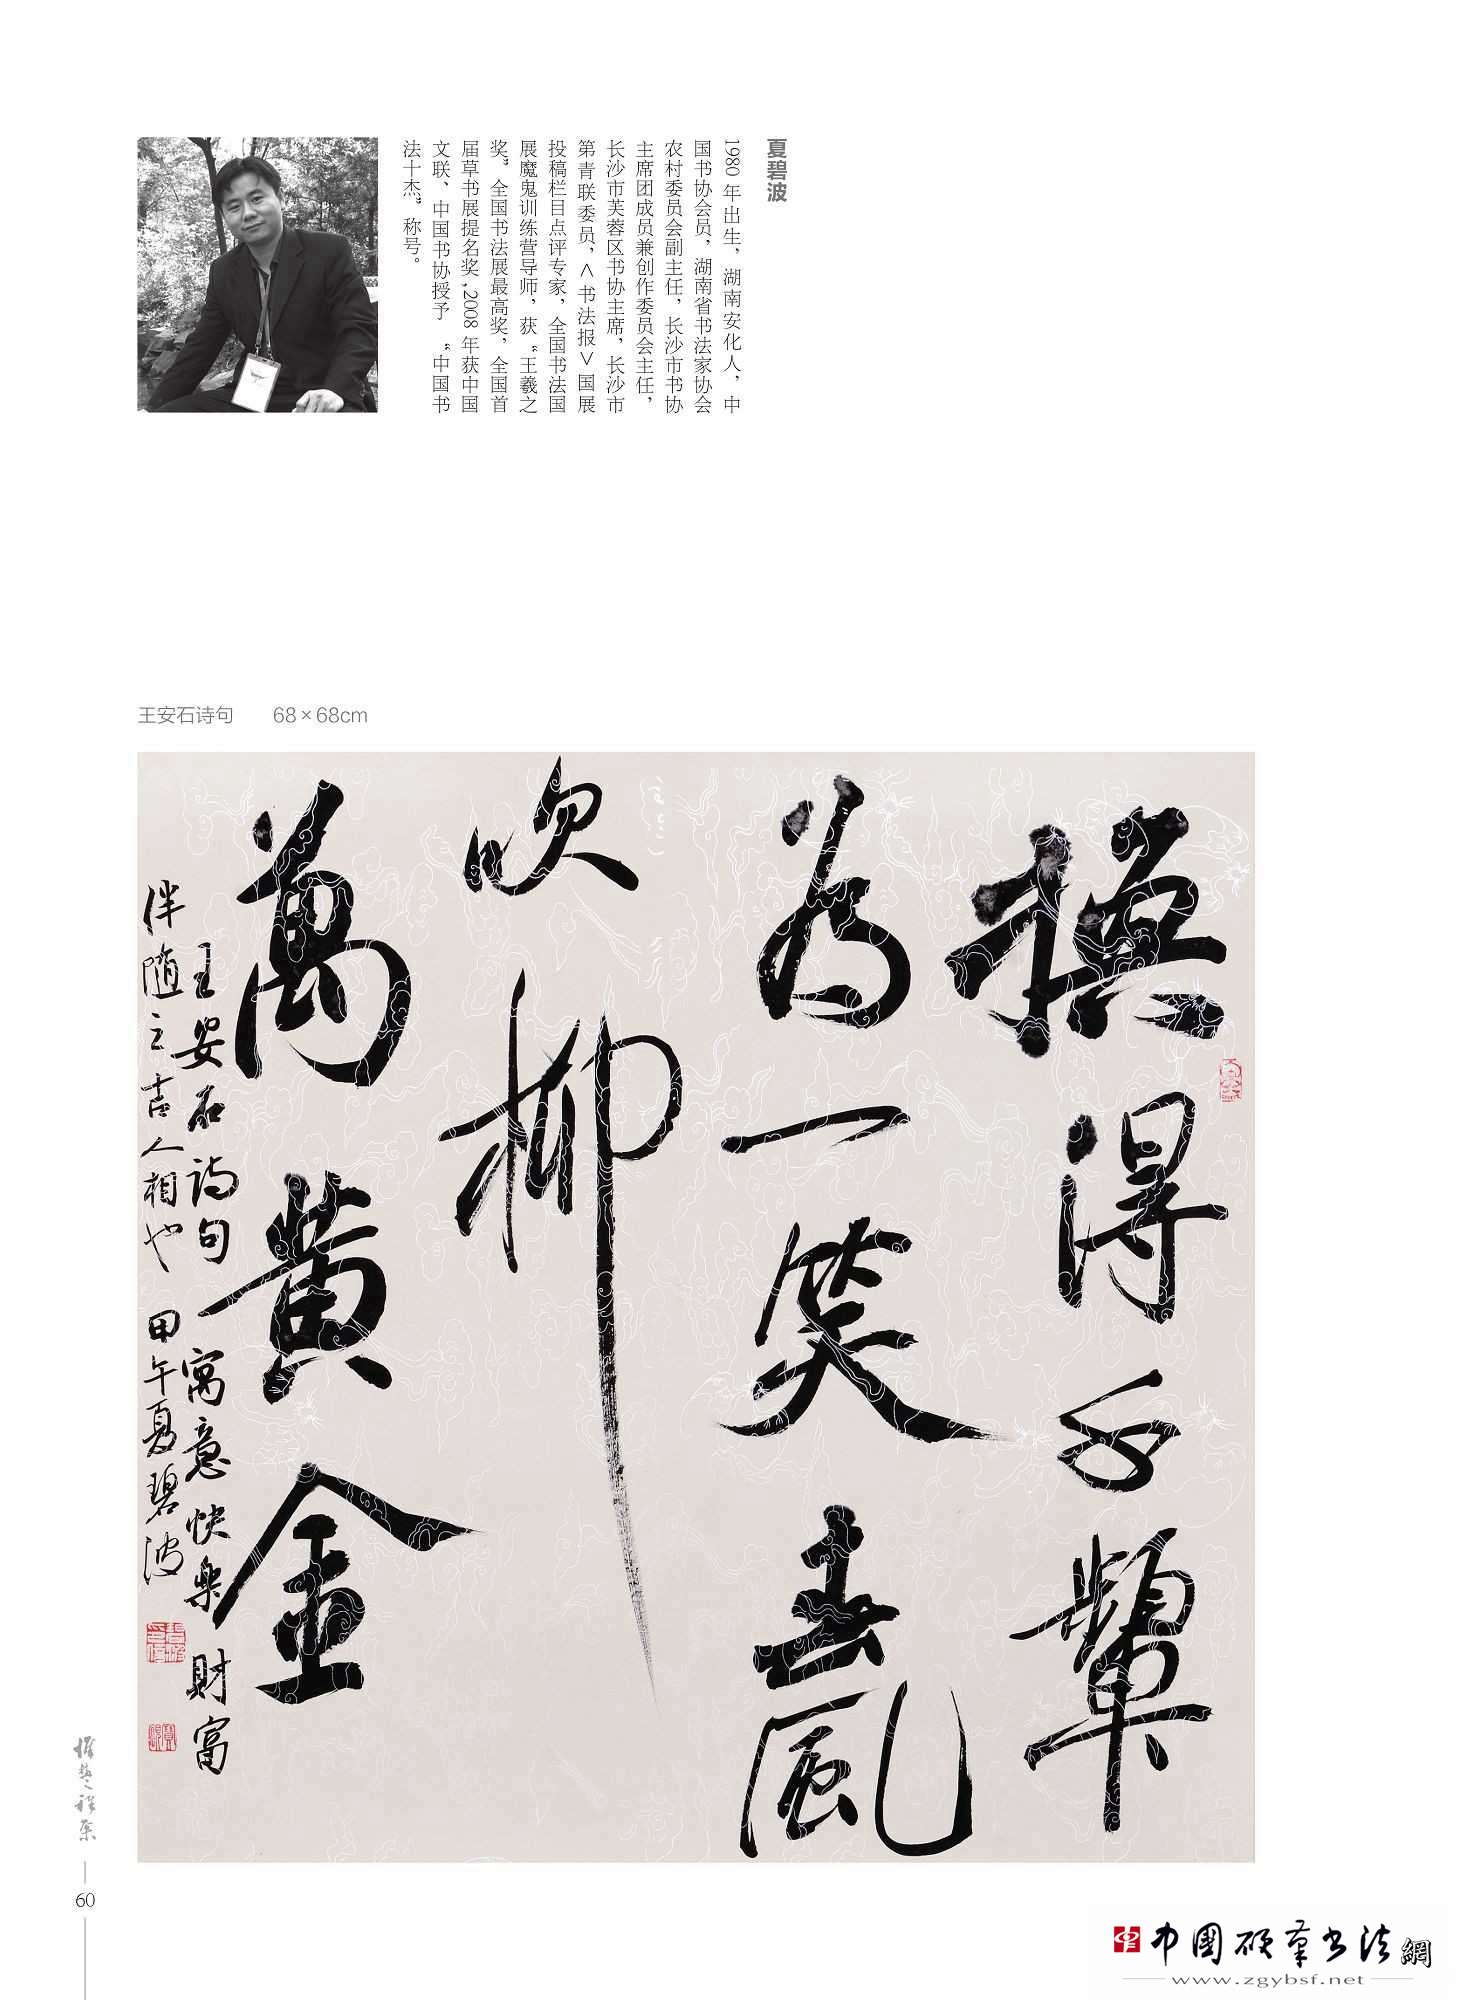 夏碧波
1980 年出生，湖南安化人，中
国书协会员，湖南省书法家协会
农村委员会副主任，长沙市书协
主席团成员兼创作委员会主任，
长沙市芙蓉区书协主席，长沙市
第青联委员，<书法报>国展
投稿栏目点评专家，全国书法国
展魔鬼训练营导师，获“王羲之
奖”全国书法展最高奖，全国首
届草书展提名奖,2008 年获中国
文联、中国书协授予 “中国书
法十杰” 称号。
王安石诗句 68×68cm
撫得千顰
为一笑春風
吹柳
萬黄金
王安石詩句 寓意快樂財富
伴随之吉人相也 甲午夏碧波
60
中国硬笔书法網
www.zgybsf.net